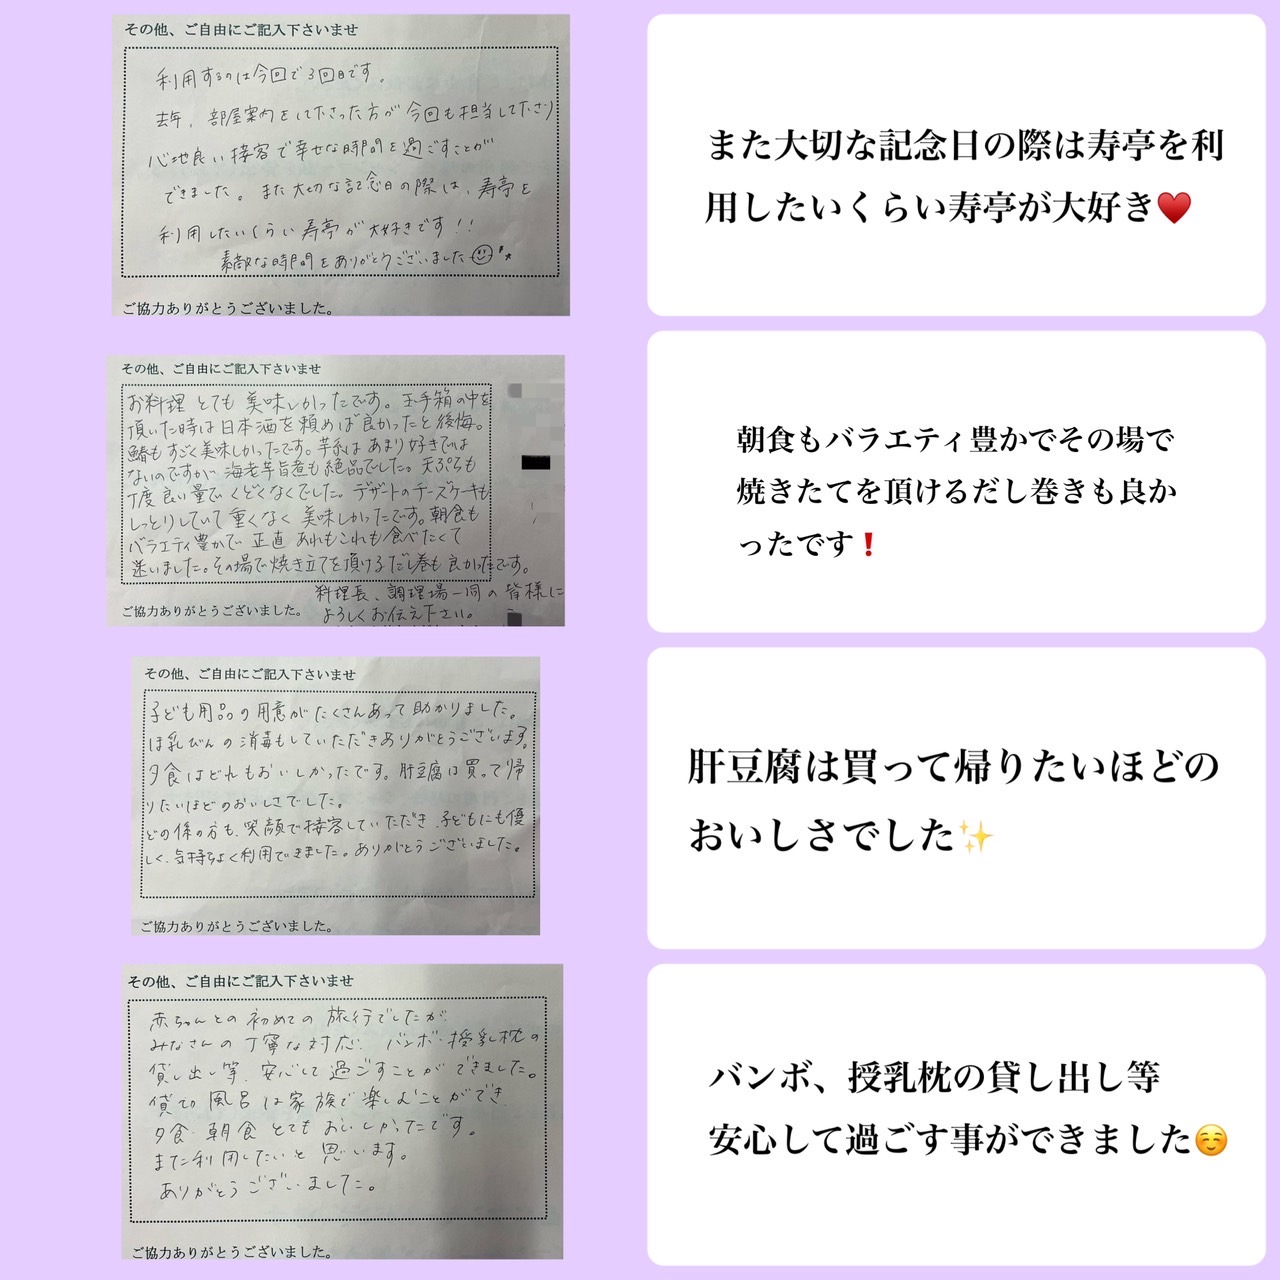 その他、ご自由にご記入下さいませ
利用するのは今回で3回目です。
去年、部屋案内をして下さった方が今回も担当して下さり
心地良い接客で幸せな時間を過ごすことが
できました。また大切な記念日の際は、寿亭を
利用したいくらい寿亭が大好きです!!
素敵な時間をありがとうございました
ご協力ありがとうございました。
また大切な記念日の際は寿亭を利
用したいくらい寿亭が大好き♥️
その他、ご自由にご記入下さいませ
お料理 とても 美味しかったです。玉手箱の中を
頂いた時は日本酒を頼めば良かったと後悔。
鰆もすごく美味しかったです。芋系はあまり好きでは
ないのですが 海老芋旨煮も絶品でした。天ぷらも
丁度良い量でくどくなくでした。デザートのチーズケーキも
しっとりしていて重くなく 美味しかったです。朝食も
バラエティ豊かで 正直 あれもこれも食べたくて
迷いました。その場で焼き立てを頂けるだし巻も良かったです。
料理長、調理場一同の皆様に
よろしくお伝え下さい。
ご協力ありがとうございました。
朝食もバラエティ豊かでその場で
焼きたてを頂けるだし巻きも良か
ったです❗
その他、ご自由にご記入下さいませ
子ども用品の用意がたくさんあって助かりました。
ほ乳びんの消毒もしていただきありがとうございます。
夕食はどれもおいしかったです。肝豆腐は買って帰
りたいほどのおいしさでした。
どの係の方も、笑顔で接客していただき、子どもにも優
しく、気持ちよく利用できました。ありがとうございました。
ご協力ありがとうございました。
肝豆腐は買って帰りたいほどの
おいしさでした✨
その他、ご自由にご記入下さいませ
赤ちゃんとの初めての旅行でしたが
みなさんの丁寧な対応、バンボ・授乳枕の
貸し出し等、安心して過ごすことができました。
貸切風呂は家族で楽しむことができ
夕食・朝食とてもおいしかったです。
また利用したいと思います。
ありがとうございました。
ご協力ありがとうございました。
バンボ、授乳枕の貸し出し等
安心して過ごす事ができました☺️